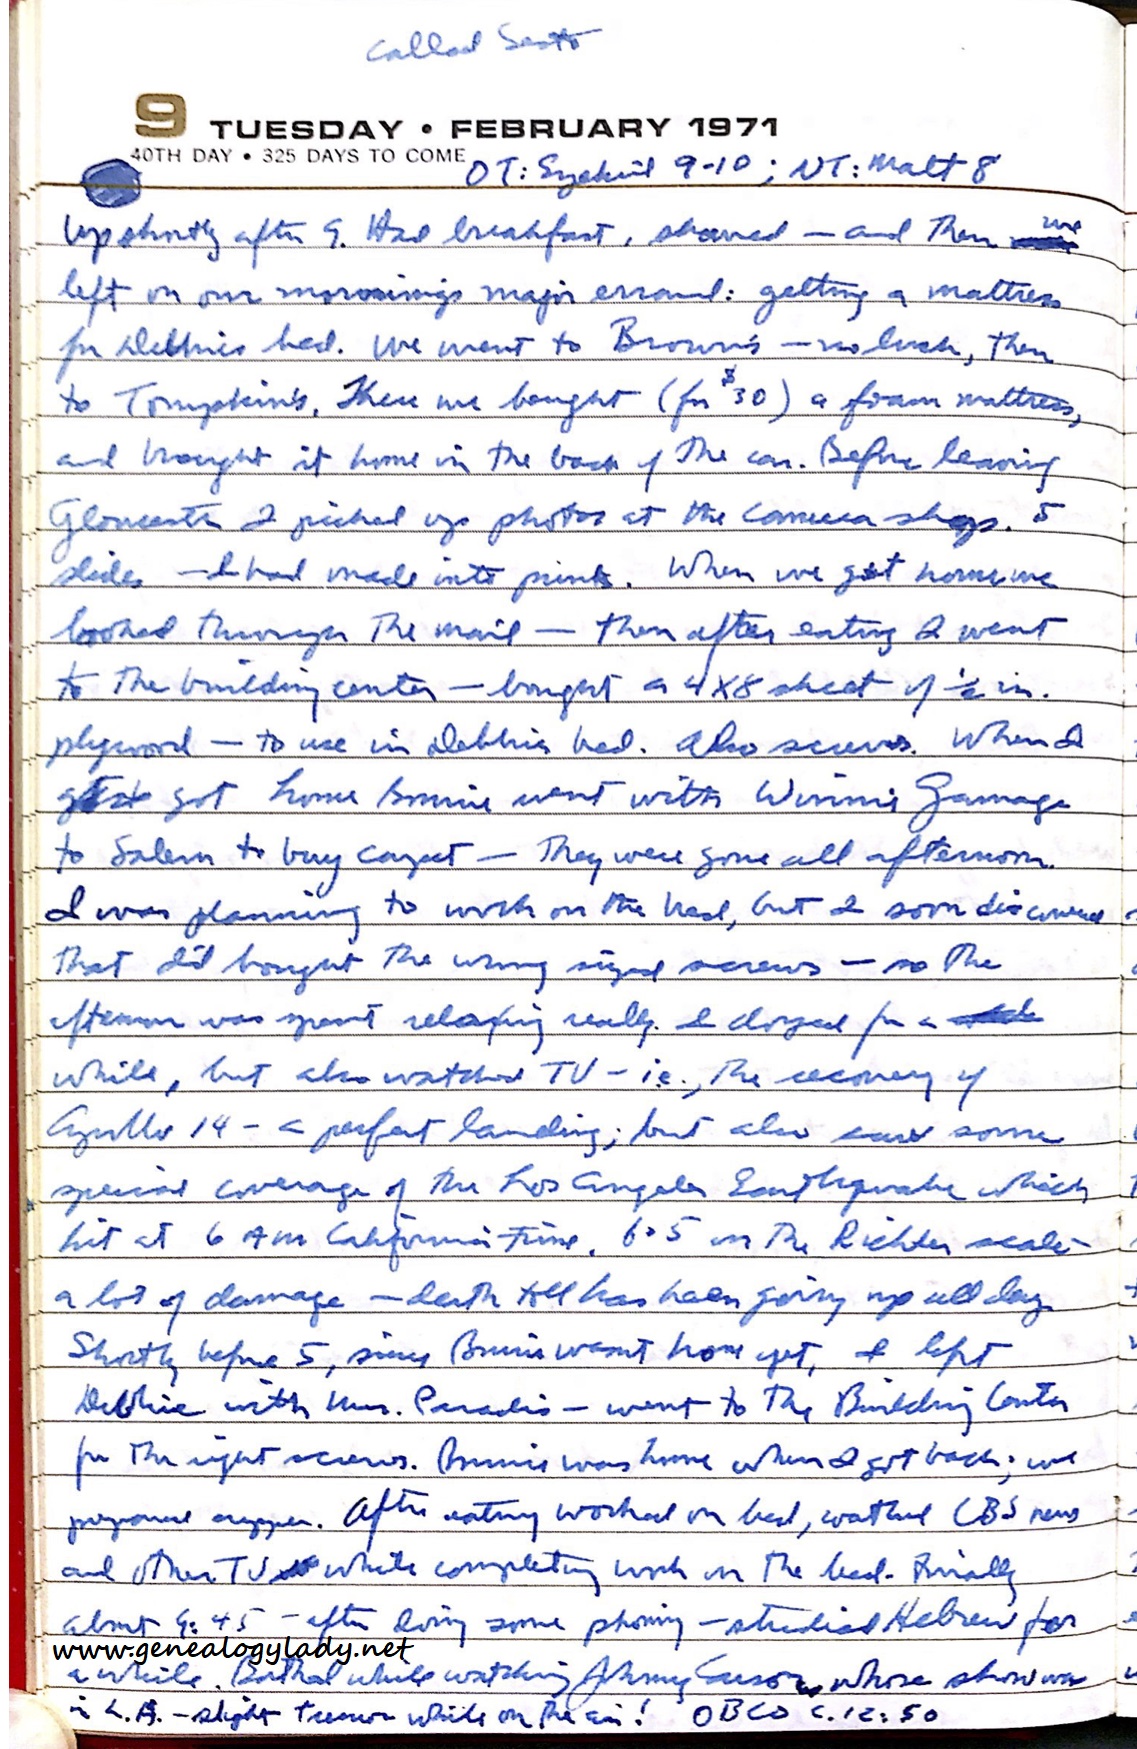 Called Scott
9 TUESDAY • FEBRUARY 1971
40TH DAY • 325 DAYS TO COME
OT: Ezekiel 9-10; NT: Matt 8
Up shortly after 9. Had breakfast, shaved — and then we
left on our mornings major errand: getting a mattress
for Debbie's bed. We went to Brown's — no luck, then
to Tompkin's. There we bought (for $30) a foam mattress,
and brought it home in the back of the car. Before leaving
Gloucester I picked up photos at the camera shop. 5
slides — I had made into prints. When we got home we
looked through the mail — then after eating I went
to the building center — bought a 4x8 sheet of ½ in.
plywood — to use in Debbie's bed. Also screws. When I
got home Bonnie went with Winnie Gamage
to Salem to buy carpet — They were gone all afternoon.
I was planning to work on the bed, but I soon discovered
that I'd bought the wrong sized screws — so the
afternoon was spent relaxing really. I dozed for a
while, but also watched TV – i.e., the recovery of
Apollo 14 – a perfect landing; but also saw some
special coverage of the Los Angeles Earthquake which
hit at 6 AM California time. 6.5 on the Richter scale –
a lot of damage — death toll has been going up all day.
Shortly before 5, since Bonnie wasn't home yet, I left
Debbie with Mrs. Paradis – went to the Building Center
for the right screws. Bonnie was home when I got back; we
prepared supper. After eating worked on bed, watched CBS news
and other TV while completing work on the bed. Finally
about 9:45 – after doing some phoning – studied Hebrew for
www.genealogylady.net
a while. Bathed while watching Johnny Carson, whose show was
in L.A. – slight tremor while on the air! OBCO c. 12:50